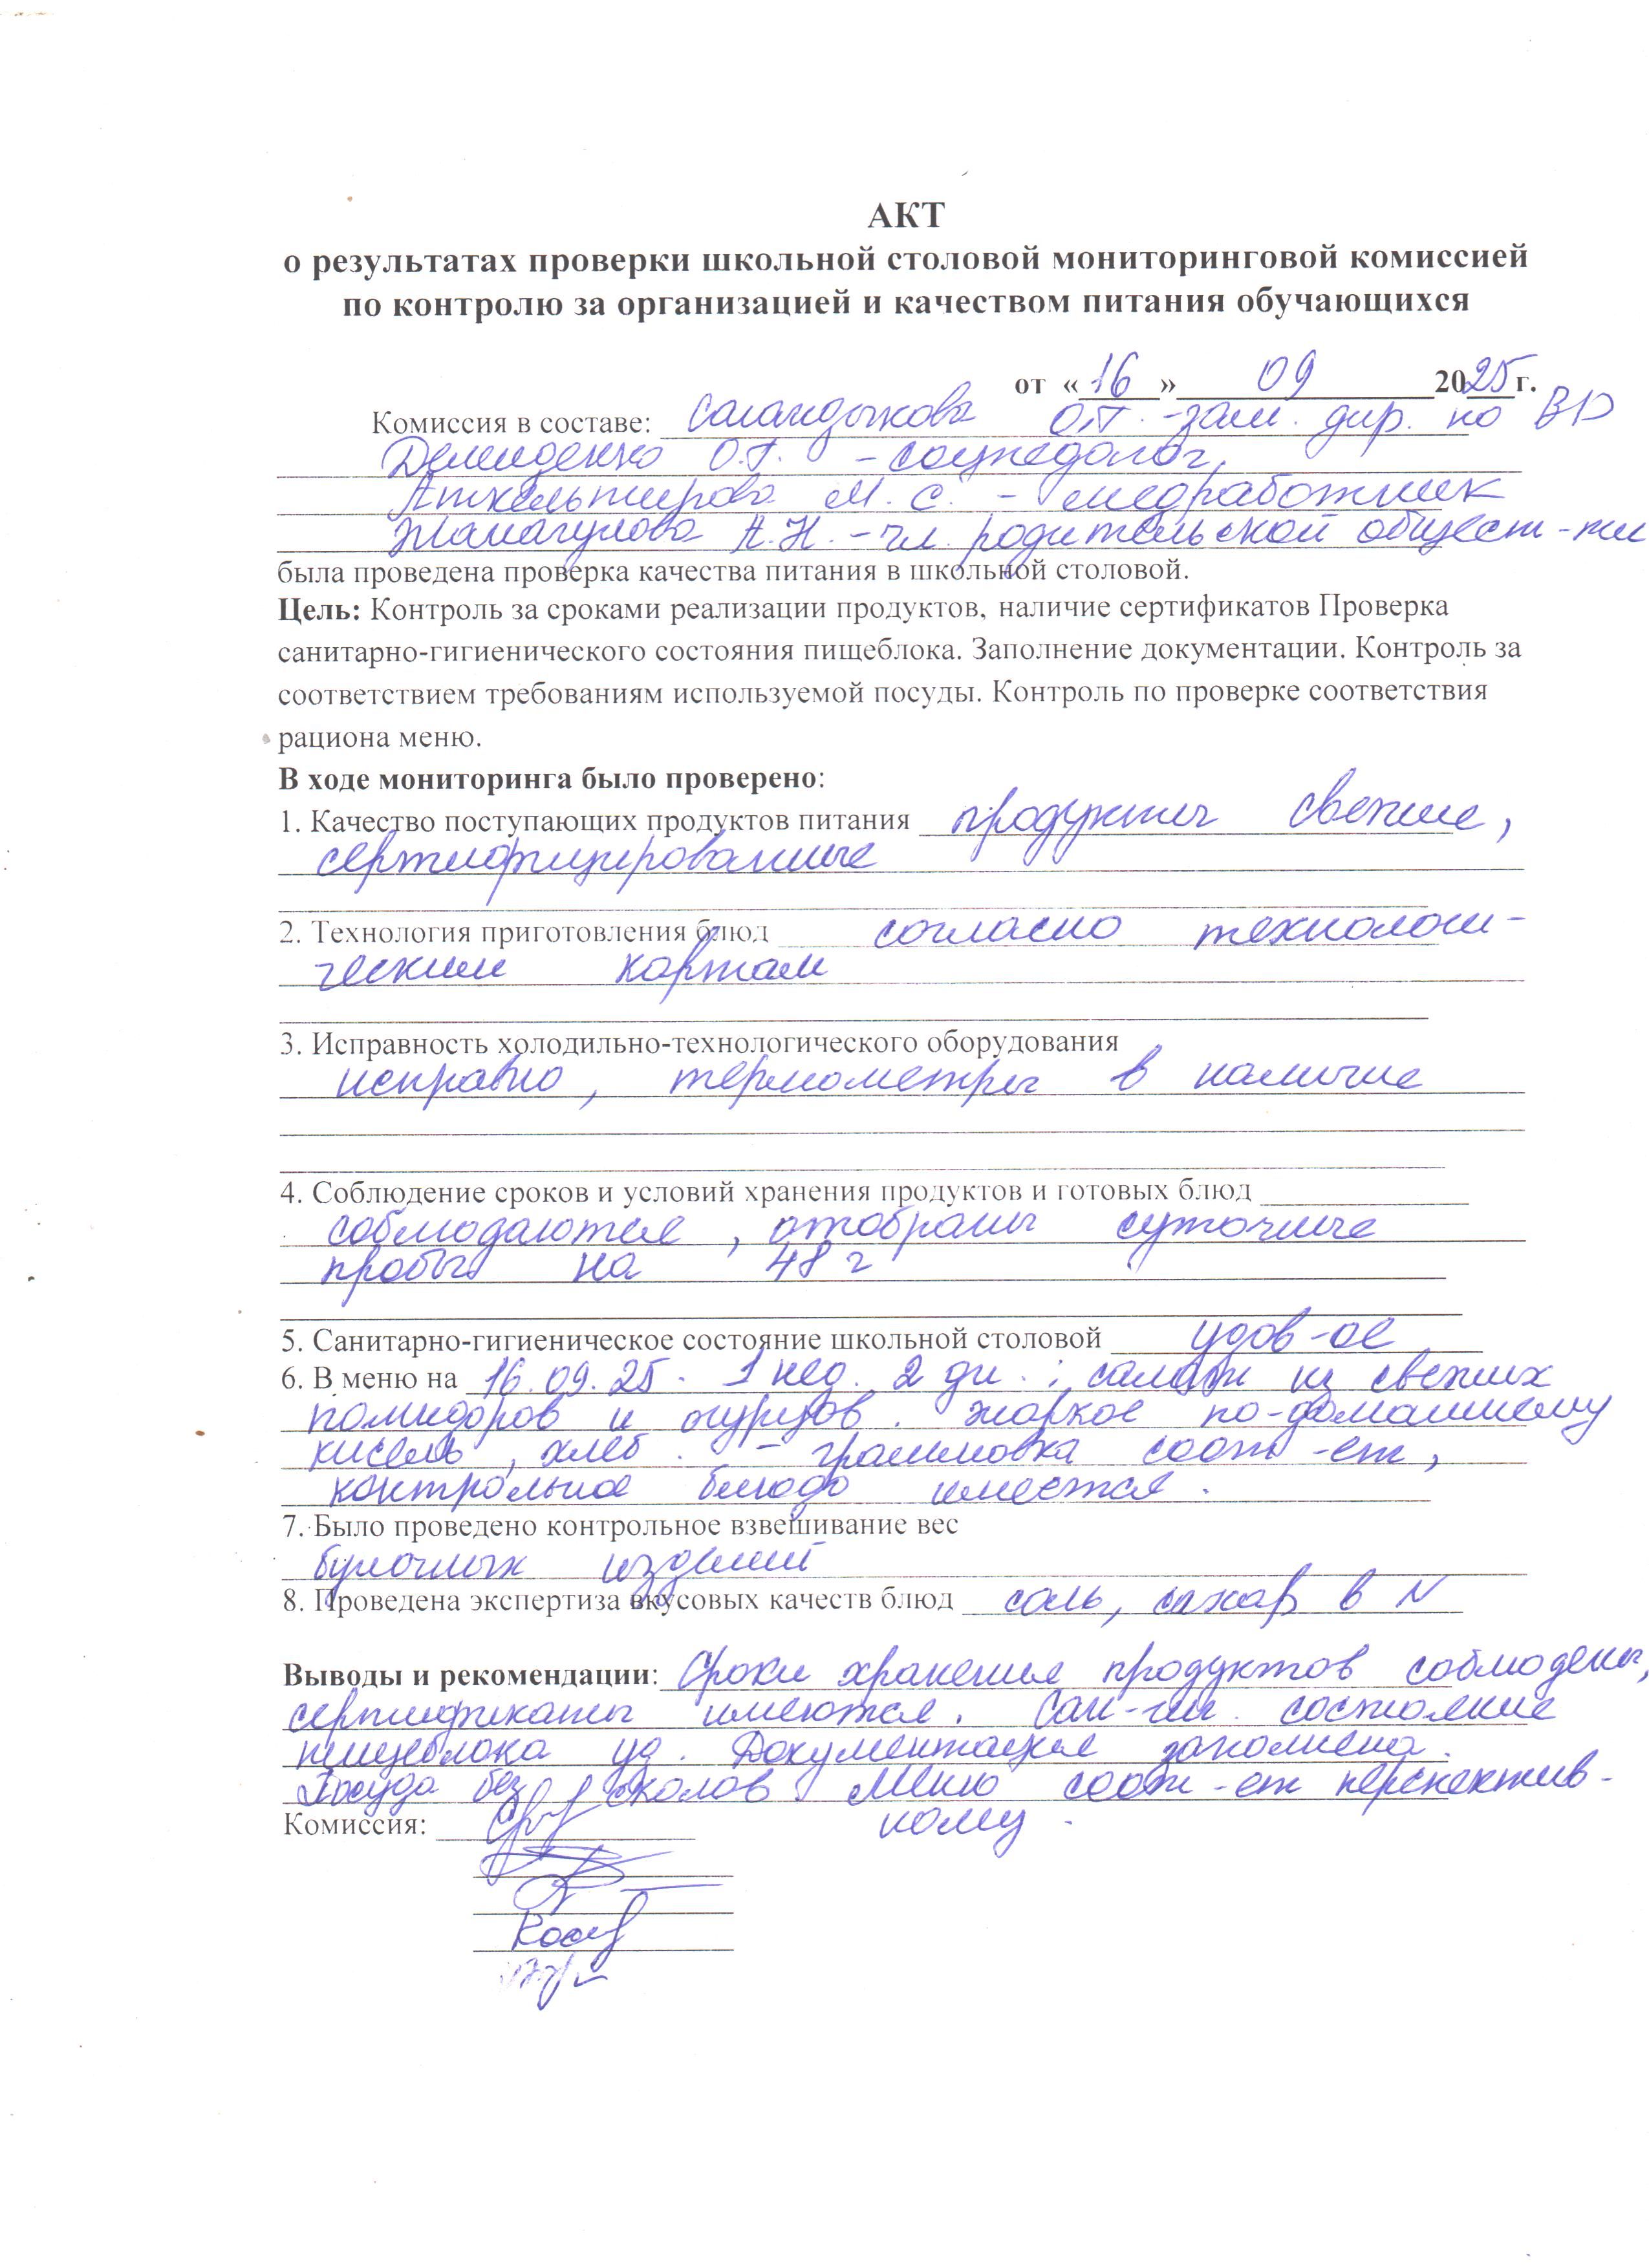 АКТ
о результатах проверки школьной столовой мониторинговой комиссией
по контролю за организацией и качеством питания обучающихся
от «16» 09 2025 г.
Комиссия в составе: О.П. -зам. дир. по ВР
Демиденко О.Г. - соцпедолог,
М. С. - медработник
Жамагулова А.Н. - чл. родительской общест-ти
была проведена проверка качества питания в школьной столовой.
Цель: Контроль за сроками реализации продуктов, наличие сертификатов Проверка
санитарно-гигиенического состояния пищеблока. Заполнение документации. Контроль за
соответствием требованиям используемой посуды. Контроль по проверке соответствия
рациона меню.
В ходе мониторинга было проверено:
1. Качество поступающих продуктов питания продукты свежие,
сертифицированные
2. Технология приготовления блюд согласно технологи-
ческим картам
3. Исправность холодильно-технологического оборудования
исправно, термометры в наличие
4. Соблюдение сроков и условий хранения продуктов и готовых блюд
соблюдаются, отобраны суточные
пробы на 48 г
5. Санитарно-гигиеническое состояние школьной столовой удов-ое
6. В меню на 16.09.25. 1 нед. 2 дн. : салат из свежих
помидоров и огурцов. жаркое по-домашнему
кисель, хлеб. - граммовка соот-ет,
контрольное блюдо имеется.
7. Было проведено контрольное взвешивание вес
булочных изделий
8. Проведена экспертиза вкусовых качеств блюд соль, сахар в N
Выводы и рекомендации: Сроки хранения продуктов соблюдены,
сертификаты имеются. Сан-гиг. состояние
пищеблока уд. Документация заполнена.
Посуда без сколов. Меню соот-ет перспектив-
ному.
Комиссия: